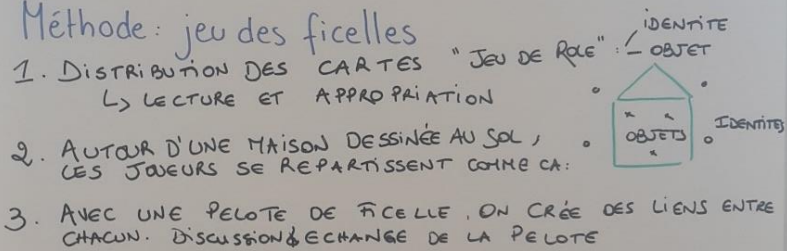 Méthode: jeu des ficelles
1. DISTRIBUTION DES CARTES "JEU DE ROLE" :
IDENTITE
OBJET
↳ LECTURE ET APPROPRIATION
2. AUTOUR D'UNE MAISON DESSINÉE AU SOL,
LES JOUEURS SE REPARTISSENT COMME CA:
OBJETS
IDENTITÉS
3. AVEC UNE PELOTE DE FICELLE, ON CRÉE DES LIENS ENTRE
CHACUN. DISCUSSION & ECHANGE DE LA PELOTE